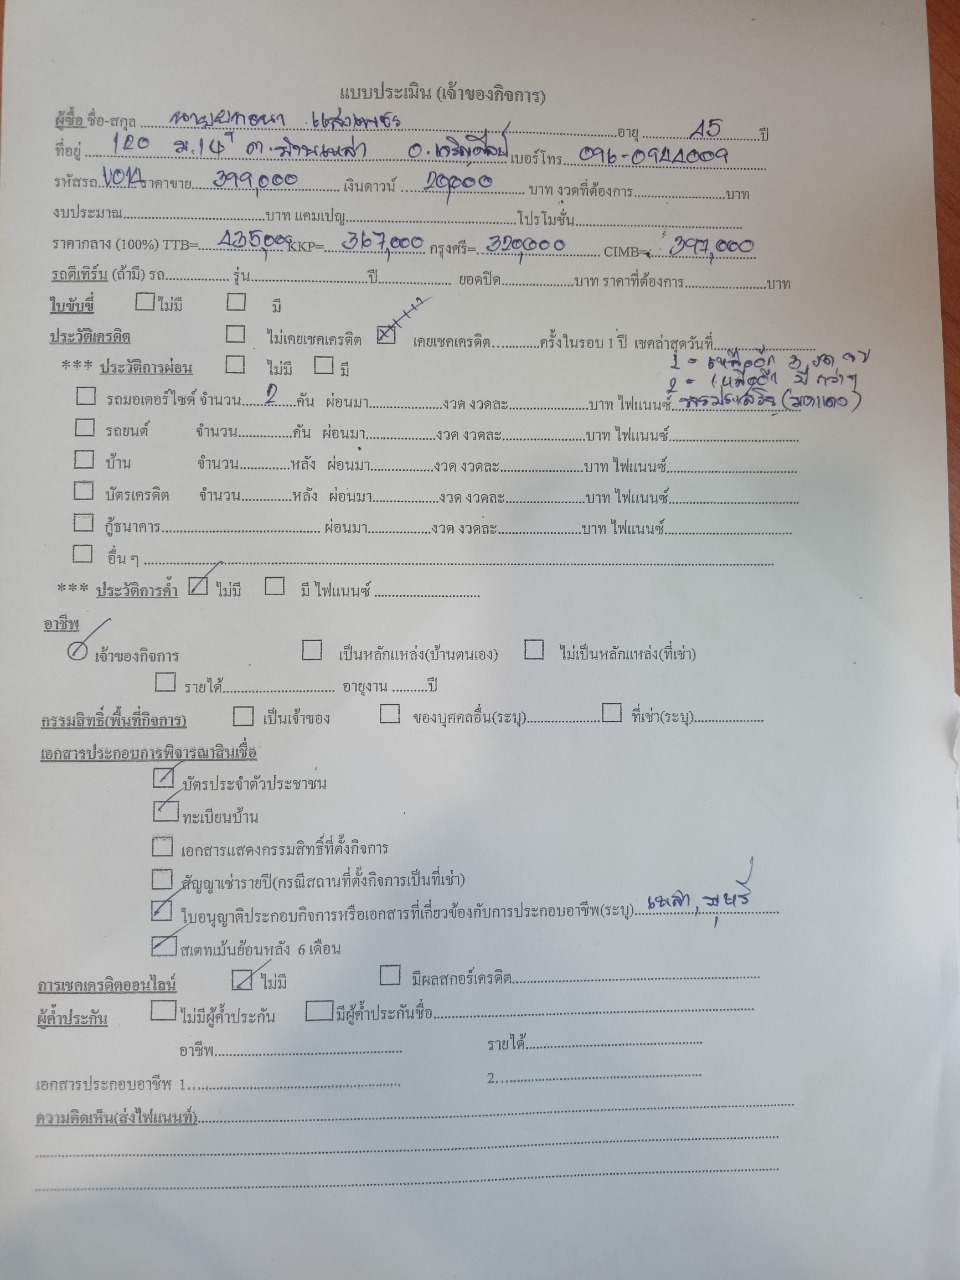 แบบประเมิน (เจ้าของกิจการ)
ผู้ซื้อ ชื่อ-สกุล ........ อายุ 45 ปี
ที่อยู่ 120 ม.14 ต. ........ อ. ........ เบอร์โทร 096-0944009
รหัสรถ ........ ราคาขาย 399,000 เงินดาวน์ 20,000 บาท งวดที่ต้องการ........บาท
งบประมาณ........บาท แคมเปญ........โปรโมชั่น........
ราคากลาง (100%) TTB= 435,000 KKP= 367,000 กรุงศรี= 320,000 CIMB= 397,000
รถตีเทิร์น (ถ้ามี) รถ........ รุ่น........ปี........ ยอดปิด........บาท ราคาที่ต้องการ........บาท
ใบขับขี่ ไม่มี มี
ประวัติเครดิต ไม่เคยเชคเครดิต เคยเชคเครดิต........ครั้งในรอบ 1 ปี เชคล่าสุดวันที่........
*** ประวัติการผ่อน ไม่มี มี 1 = เหลืออีก 3 งวด จบ
2 = เหลืออีก ปี กว่าๆ
รถมอเตอร์ไซด์ จำนวน 2 คัน ผ่อนมา........งวด งวดละ........บาท ไฟแนนซ์
รถยนต์ จำนวน........คัน ผ่อนมา........งวด งวดละ........บาท ไฟแนนซ์........
บ้าน จำนวน........หลัง ผ่อนมา........งวด งวดละ........บาท ไฟแนนซ์........
บัตรเครดิต จำนวน........หลัง ผ่อนมา........งวด งวดละ........บาท ไฟแนนซ์........
กู้ธนาคาร........ ผ่อนมา........งวด งวดละ........บาท ไฟแนนซ์........
อื่น ๆ ........
*** ประวัติการค้ำ ไม่มี มี ไฟแนนซ์ ........
อาชีพ
เจ้าของกิจการ เป็นหลักแหล่ง(บ้านตนเอง) ไม่เป็นหลักแหล่ง(ที่เช่า)
รายได้........ อายุงาน ........ปี
กรรมสิทธิ์(พื้นที่กิจการ) เป็นเจ้าของ ของบุคคลอื่น(ระบุ)........ ที่เช่า(ระบุ)........
เอกสารประกอบการพิจารณาสินเชื่อ
บัตรประจำตัวประชาชน
ทะเบียนบ้าน
เอกสารแสดงกรรมสิทธิ์ที่ตั้งกิจการ
สัญญาเช่ารายปี(กรณีสถานที่ตั้งกิจการเป็นที่เช่า)
ใบอนุญาติประกอบกิจการหรือเอกสารที่เกี่ยวข้องกับการประกอบอาชีพ(ระบุ) เหล้า, บุหรี่
สเตทเม้นย้อนหลัง 6 เดือน
การเชคเครดิตออนไลน์ ไม่มี มีผลสกอร์เครดิต........
ผู้ค้ำประกัน ไม่มีผู้ค้ำประกัน มีผู้ค้ำประกันชื่อ........
อาชีพ........ รายได้........
เอกสารประกอบอาชีพ 1........ 2........
ความคิดเห็น(ส่งไฟแนนท์)........